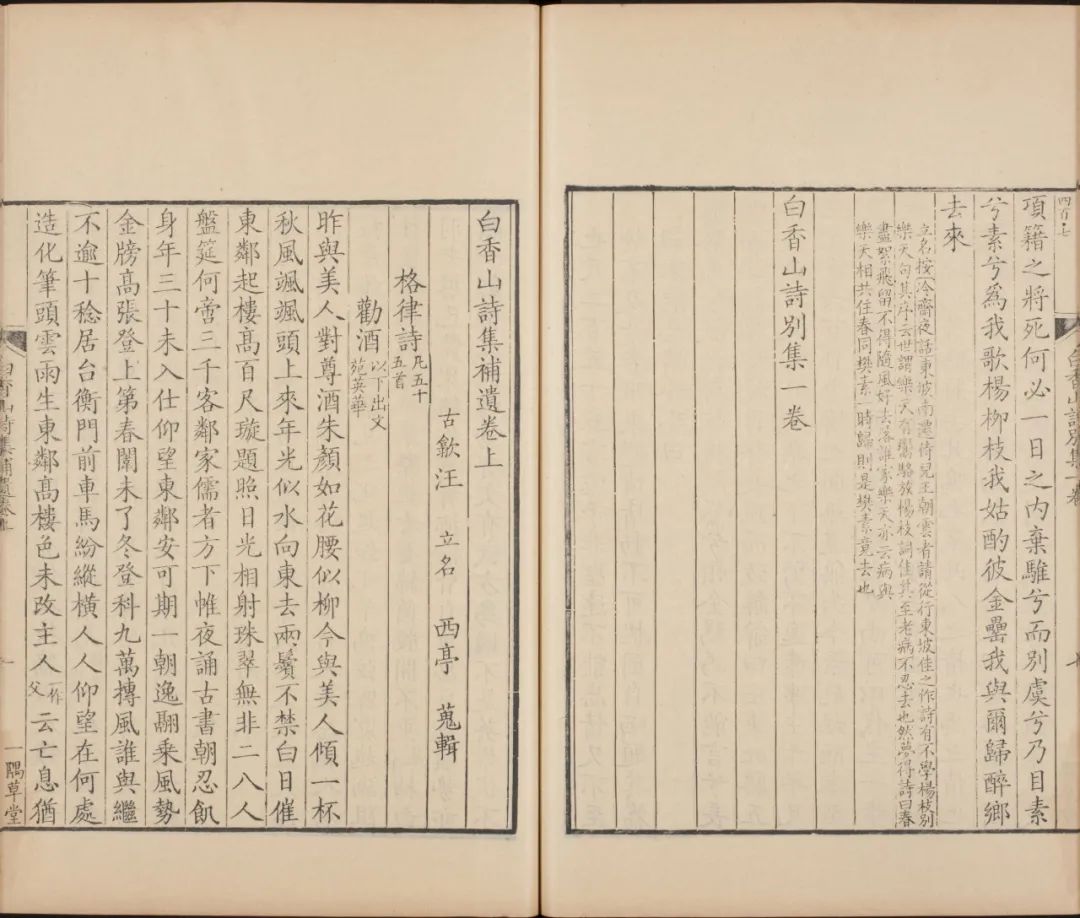 四百七
項籍之將死何必一日之內棄騅兮而別虞兮乃目素
兮素兮為我歌楊柳枝我姑酌彼金罍我與爾歸醉鄉
去來
立名按冷齋夜話東坡南遷侍兒王朝雲者請從行東坡佳之作詩有不學楊枝別
樂天句其序云世謂樂天有鬻駱放楊枝詞佳其至老病不忍去也然夢得詩曰春
盡絮飛留不得隨風好去落誰家樂天亦云病與
樂天相共住春同樊素一時歸則是樊素竟去也
白香山詩別集一卷
白香山詩別集一卷
白香山詩集補遺卷上
古歙汪 立名 西亭 蒐輯
格律詩凡五十
五首
勸酒以下出文
苑英華
昨與美人對尊酒朱顏如花腰似柳今與美人傾一杯
秋風颯颯頭上來年光似水向東去兩鬢不禁白日催
東鄰起樓髙百尺璇題照日光相射珠翠無非二八人
盤筵何啻三千客鄰家儒者方下帷夜誦古書朝忍飢
身年三十未入仕仰望東鄰安可期一朝逸翮乘風勢
金牓髙張登上第春闈未了冬登科九萬摶風誰與繼
不逾十稔居台衡門前車馬紛縱橫人人仰望在何處
造化筆頭雲雨生東鄰髙樓色未改主人一作
父云亡息猶
白香山詩集補遺卷上
一
一隅草堂